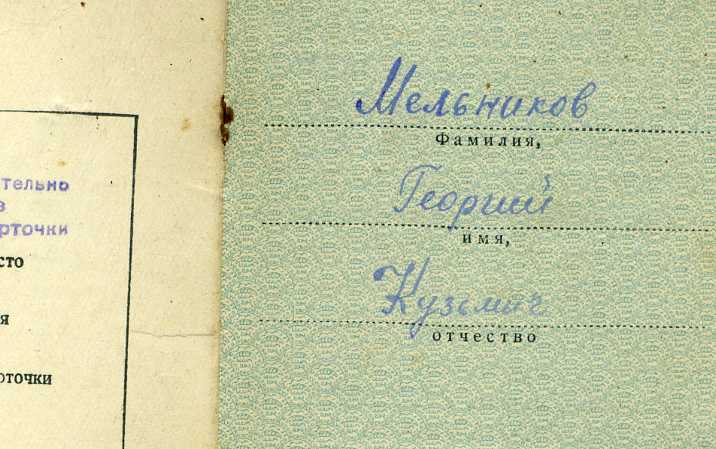 тельно
в
рточки
сто
я
рточки
Мельников
Фамилия,
Георгий
имя,
Кузьмич
отчество